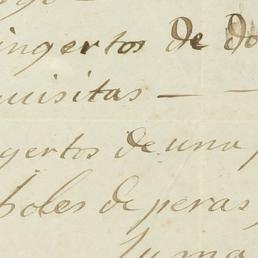 ingertos de do
uisitas — —
gertos de una
boles de peras,